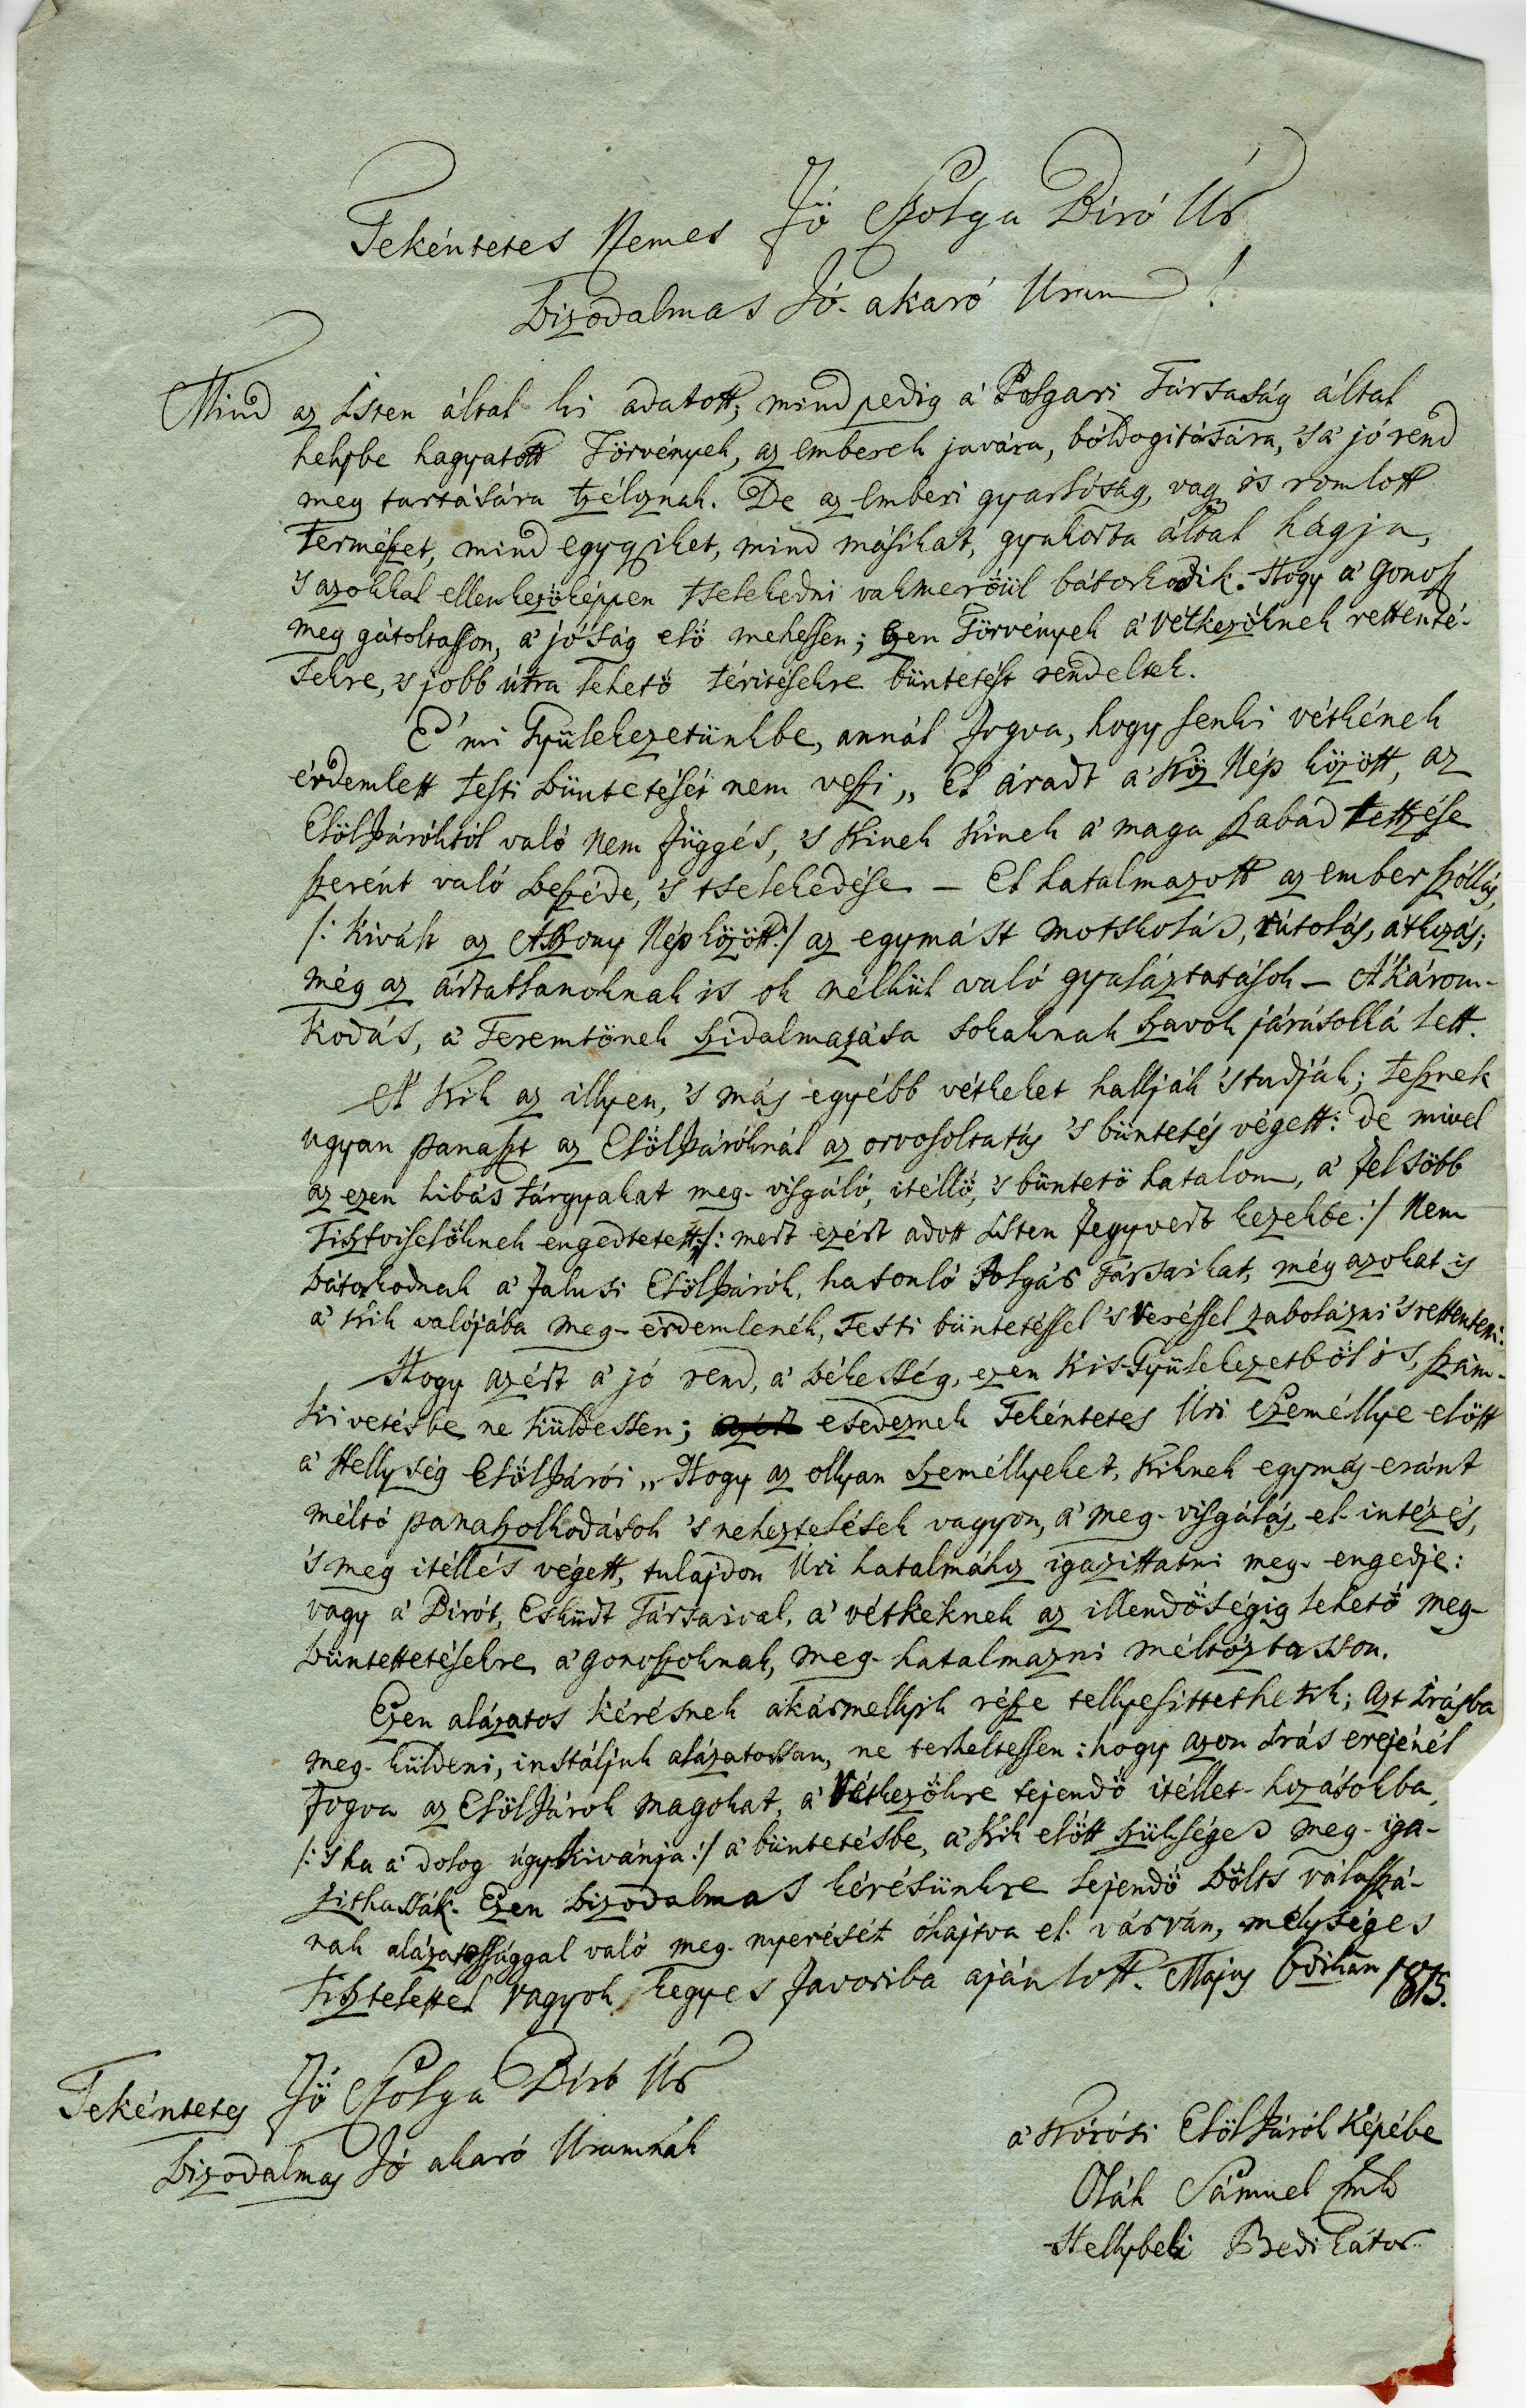 Tekéntetes Nemes Fő Szolga Biró Úr
Bizodalmas Jó-akaró Uram!
Mind az Isten által ki adatott, mind pedig a' Polgari Társaság által
helybe hagyatott Törvények, az emberek javára, bóldogitására, 's a' jó rend
meg tartására tzéloznak. De az emberi gyarlóság, vagy is romlott
Természet, mind egygyiket, mind másikat, gyakorta által hágja,
's azokkal ellenkezőképpen tselekedni vakmerőűl bátorkodik. Hogy a' gonosz
meg gátoltasson, a' jóság elő mehessen; Ezen Törvények a' vétkezőknek rettenté-
sekre, 's jobb útra lehető téritésekre büntetést rendeltek.
E' mi Gyülekezetünkbe, annál fogva, hogy senki vétkének
érdemlett testi büntetését nem veszi „ El áradt a' Köz Nép között, az
Elöljáróktól való nem függés, 's Kinek Kinek a' maga szabad tettzése
szerént való beszéde, 's tselekedése – El hatalmazott az ember szóllás,
/: kivált az Aszszony Nép között :/ az egymást motskolás, rútolás, átkozás;
még az ártatlanoknak is ok nélkül való gyaláztatások – A' károm-
kodás, a' Teremtőnek szidalmazása sokaknak szavok járásollá lett.
A' Kik az illyen, 's más egyébb vétkeket hallják 's tudják; tesznek
ugyan panaszt az Elöljáróknál az orvosoltatás 's büntetés végett: de mivel
az ezen hibás tárgyakat meg-visgáló, itéllő, 's büntető hatalom, a' felsőbb
Tisztviselőknek engedtetett /: mert ezért adott Isten fegyvert kezekbe :/ Nem
bátorkodnak a' falusi Elöljárók, hasonló Polgár Társaikat, még azokat is
a' kik valójába meg-érdemlenék, Testi büntetéssel 's veréssel zabolázni 's rettenteni.
Hogy azért a' jó rend, a' békesség, ezen kis Gyülekezetből is, szám-
kivetésbe ne küldessen; esedeznek Tekéntetes Úri Személlye előtt
a' Hellység Elöljárói „ Hogy az ollyan személlyeket, kiknek egymás eránt
méltó panaszolkodások 's neheztelések vagyon, a' meg-visgálás, el-intézés,
's meg itéllés végett, tulajdon Úri hatalmához igazittatni meg-engedje:
vagy a' Birót, Esküdt Társaival, a' vétkeknek az illendőségig lehető meg-
büntettetésekre a' gonoszoknak, meg-hatalmazni méltóztasson.
Ezen alázatos kérésnek akármellyik része tellyesittethetik; Azt Irásba
meg-küldeni, instáljuk alázatossan, ne terheltessen: hogy azon Irás erejénél
fogva az Elöljárók magokat, a' Vétkezőkre tejendő itéllet-hozásokba,
/: 's ha a' dolog úgy kivánja :/ a' büntetésbe, a' Kik előtt szükséges meg-iga-
zithassák. Ezen bizodalmas kérésünkre lejendő bölts válaszszá-
nak alázatossággal való meg-nyerését óhajtva el-várván, mélységes
Tisztelettel vagyok kegyes favoriba ajánlott. Majus 6dikán 1815.
Tekéntetes Fő Szolga Biró Úr
Bizodalmas Jó akaró Uramnak
a' Kórósi Elöljárók Képébe
Oláh Sámuel
Hellybeli Prédikátor